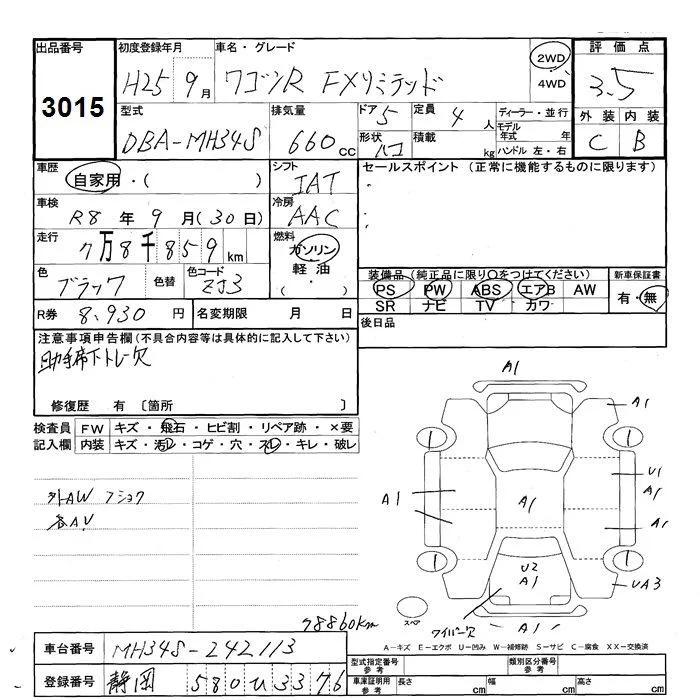 出品番号 初度登録年月 車名・グレード 評価点
3015 H25 9月 ワゴンR FXリミテッド 2WD 3.5
4WD
型式 排気量 ドア 5 定員 4人 ディーラー・並行 外装 内装
DBA-MH34S 660cc 形状 ハコ 積載 kg モデル年式 年 C B
ハンドル 左・右
車歴 シフト セールスポイント (正常に機能するものに限ります)
自家用・( ) IAT ・
車検 冷房
R8年 9月(30日) AAC ・
走行 燃料
7万8千859km ガソリン
色 色替 色コード 軽油 装備品(純正品に限り○をつけてください) 新車保証書
ブラック ZJ3 ・( ) PS PW ABS エアB AW 有・無
R券 8,930円 名変期限 月 日 SR ナビ TV カワ
注意事項申告欄(不具合内容等は具体的に記入して下さい) 後日品
助手席下トレー欠
修復歴 有 〔箇所 〕
検査員 FW キズ・飛石・ヒビ割・リペア跡・×要
記入欄 内装 キズ・汚レ・コゲ・穴・スレ・キレ・破レ
A1
A1
1 1
外AW フショク U1
各A,U A1 A1 A1
A1
1 1
U2
A1 UA3
スペア
ワイパー欠 A1
78860km
A-キズ E-エクボ U-凹み W-補修跡 S-サビ C-腐食 XX-交換済
車台番号 MH34S-242113
型式指定番号 参考 類別区分番号 参考
登録番号 静岡 580 ひ 3376
車庫証明用 参考 長さ cm 幅 cm 高さ cm